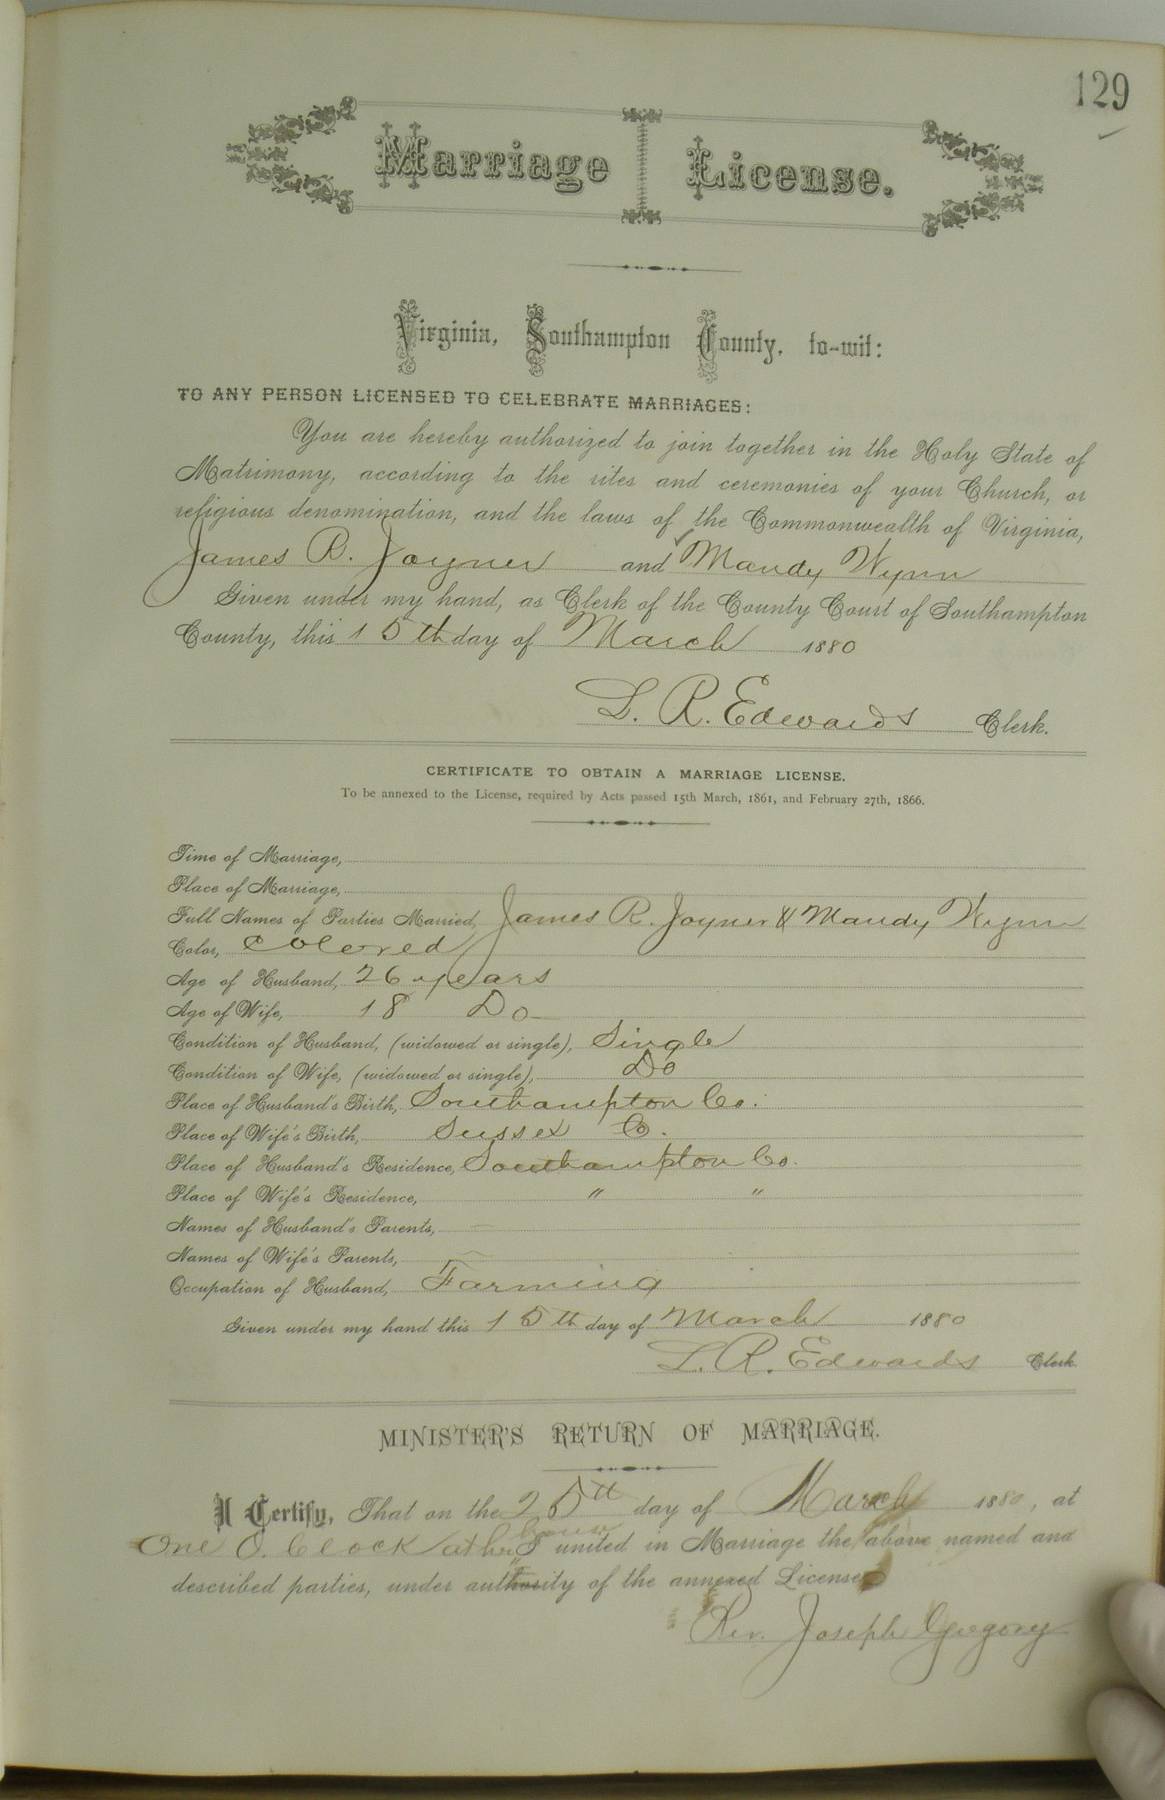 129
Marriage License.
Virginia, Southampton County, to-wit:
TO ANY PERSON LICENSED TO CELEBRATE MARRIAGES:
You are hereby authorized to join together in the Holy State of
Matrimony, according to the rites and ceremonies of your Church, or
religious denomination, and the laws of the Commonwealth of Virginia,
James R. Joyner and Mandy Wynn
Given under my hand, as Clerk of the County Court of Southampton
County, this 15th day of March 1880
L. R. Edwards Clerk.
CERTIFICATE TO OBTAIN A MARRIAGE LICENSE.
To be annexed to the License, required by Acts passed 15th March, 1861, and February 27th, 1866.
Time of Marriage,
Place of Marriage,
Full Names of Parties Married, James R. Joyner & Mandy Wynn
Color, Colored
Age of Husband, 26 years
Age of Wife, 18 Do
Condition of Husband, (widowed or single), Single
Condition of Wife, (widowed or single), Do
Place of Husband's Birth, Southampton Co.
Place of Wife's Birth, Sussex Co.
Place of Husband's Residence, Southampton Co.
Place of Wife's Residence, " "
Names of Husband's Parents,
Names of Wife's Parents,
Occupation of Husband, Farming
Given under my hand this 15th day of March 1880
L. R. Edwards Clerk
MINISTER'S RETURN OF MARRIAGE.
I Certify, That on the 25th day of March 1880, at
One O. Clock at her house I united in Marriage the above named and
described parties, under authority of the annexed License.
Rev. Joseph Gregory